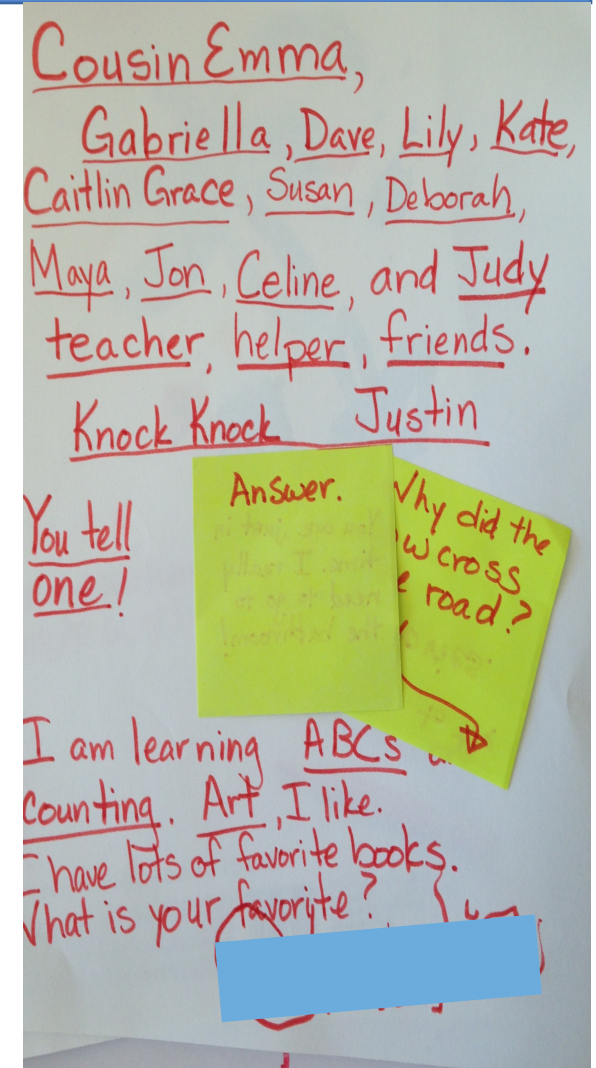 Cousin Emma,
Gabriella, Dave, Lily, Kate,
Caitlin Grace, Susan, Deborah,
Maya, Jon, Celine, and Judy
teacher, helper, friends.
Knock Knock Justin
You tell
one!
Answer.
You are just in
time. I really
need to go to
the bathroom!
Why did the
ow cross
e road?
I am learning ABCs
counting. Art, I like.
I have lots of favorite books.
What is your favorite?